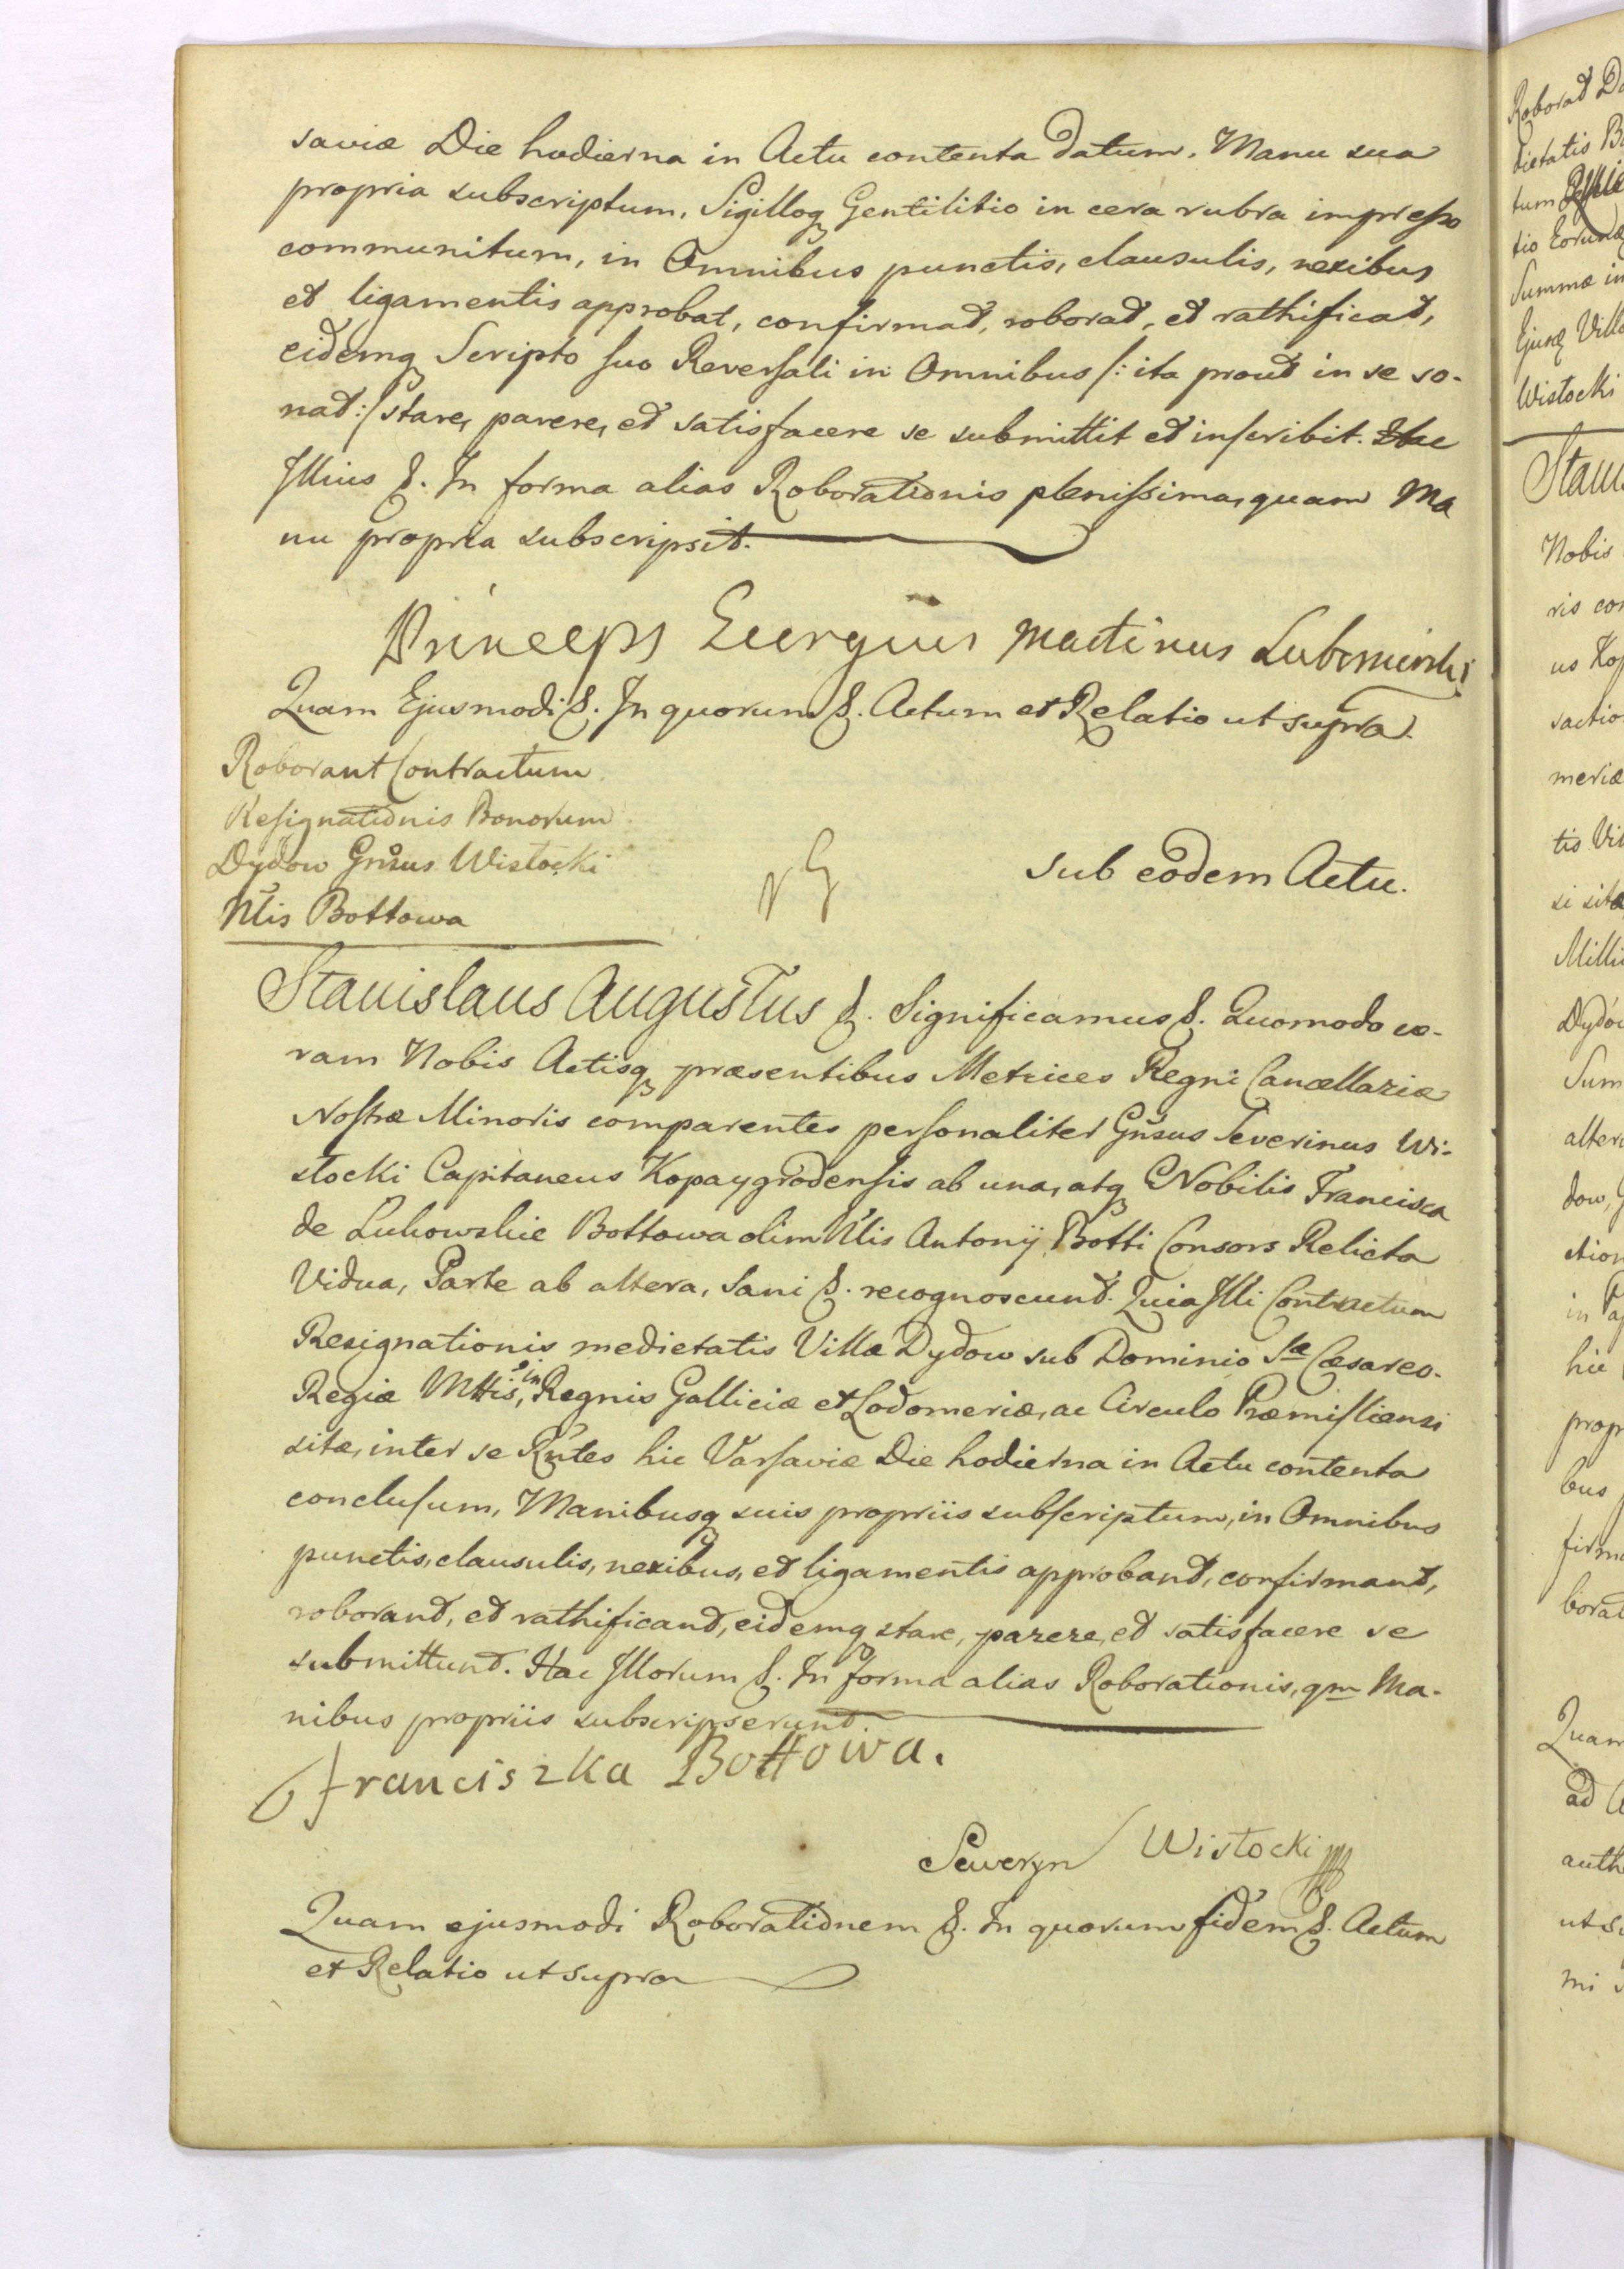 saviæ Die hodierna in Actu contenta datum. Manu sua
propria subscriptum, Sigilloq Gentilitio in cera rubra impresso
communitum, in Omnibus punctis, clausulis, nexibus
et ligamentis approbat, confirmat, roborat, et rathificat,
eidemq Scripto suo Reversali in Omnibus /: ita prout in se so-
nat :/ stare, parere, et satisfacere se submittit et inscribit. Hac
Illius &. In forma alias Roborationis plenissima, quam Ma
nu propria subscripsit.
Princeps Martinus Lubomirski
Quam Ejusmodi &. In quorum &. Actum et Relatio ut supra.
Roborant Contractum
Resignationis Bonorum
Dydow Gnsus Wisłocki
Nlis Bottowa
Sub eodem Actu.
Stanislaus Augustus &. Significamus &. Quomodo co-
ram Nobis Actisq præsentibus Metrices Regni Cancellariæ
Nostræ Minoris comparentes personaliter Gnsus Severinus Wi-
słocki Capitaneus Kopaygrodensis ab una, atq Nobilis Francisca
de Lukowskie Bottowa olim Nlis Antonij Botti Consors Relicta
Vidua, Parte ab altera, Sani &. recognoscunt. Quia Illi Contractum
Resignationis medietatis Villæ Dydow sub Dominio Sæ Cæsareo-
Regiæ Mttis, in Regnis Galliciæ et Lodomeriæ, ac Circulo Præmisliensi
sitæ, inter se Rntes hic Varsaviæ Die hodierna in Actu contenta
conclusum, Manibusq suis propriis subscriptum, in Omnibus
punctis, clausulis, nexibus, et ligamentis approbant, confirmant,
roborant, et rathificant, eidemq stare, parere, et satisfacere se
submittunt. Hac Illorum &. In forma alias Roborationis, qm Ma-
nibus propriis subscripserunt.
Franciszka Bottowa.
Seweryn Wisłocki
Quam ejusmodi Roborationem &. In quorum fidem &. Actum
et Relatio ut supra
Roborat
dietatis
tum
tio
Summæ in
Villa
Wisłocki
Nobis
ris
us
sactio
meriæ
tis
si sitæ
Sum
dow,
in
hic
prop
bus
firm
Quam
ad
mi